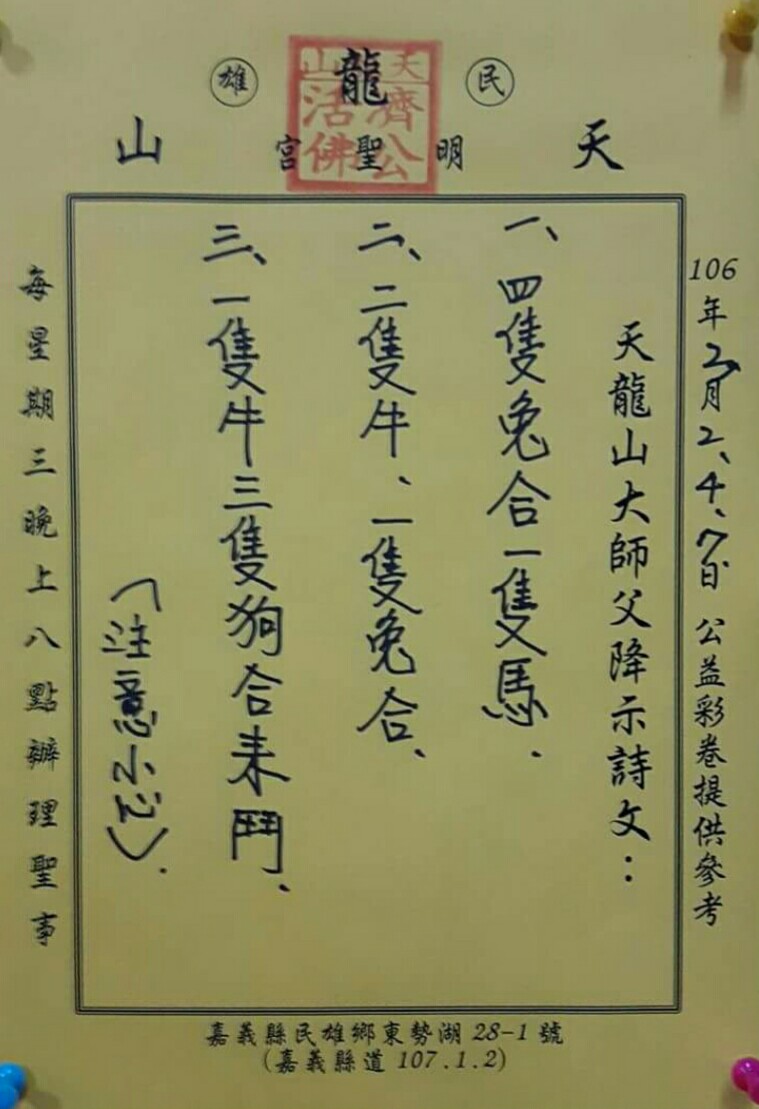 民 龍 雄
天 明聖宮 山
天山
濟公
活佛
106年2月2、4、7日 公益彩卷提供參考
天龍山大師父降示詩文：
一、四隻兔合一隻馬．
二、二隻牛、一隻兔合、
三、一隻牛三隻狗合来鬥、
（注意小心）．
每星期三晚上八點辦理聖事
嘉義縣民雄鄉東勢湖28-1號
(嘉義縣道107.1.2)